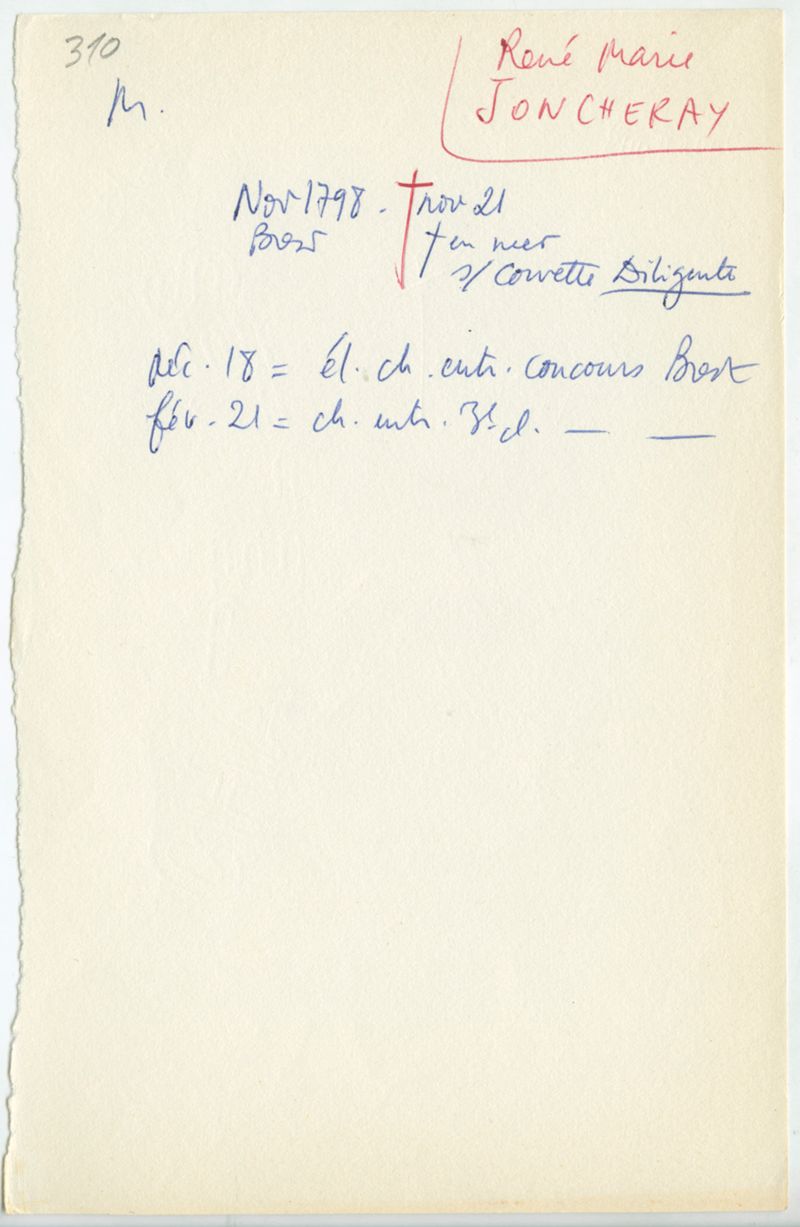 310
René Marie
JONCHERAY
M.
Nov 1798 - † nov 21
Brest † en mer
s/ Corvette Diligente
déc. 18 = él. ch. entr. concours Brest
fév. 21 = ch. entr. 3e cl. — —